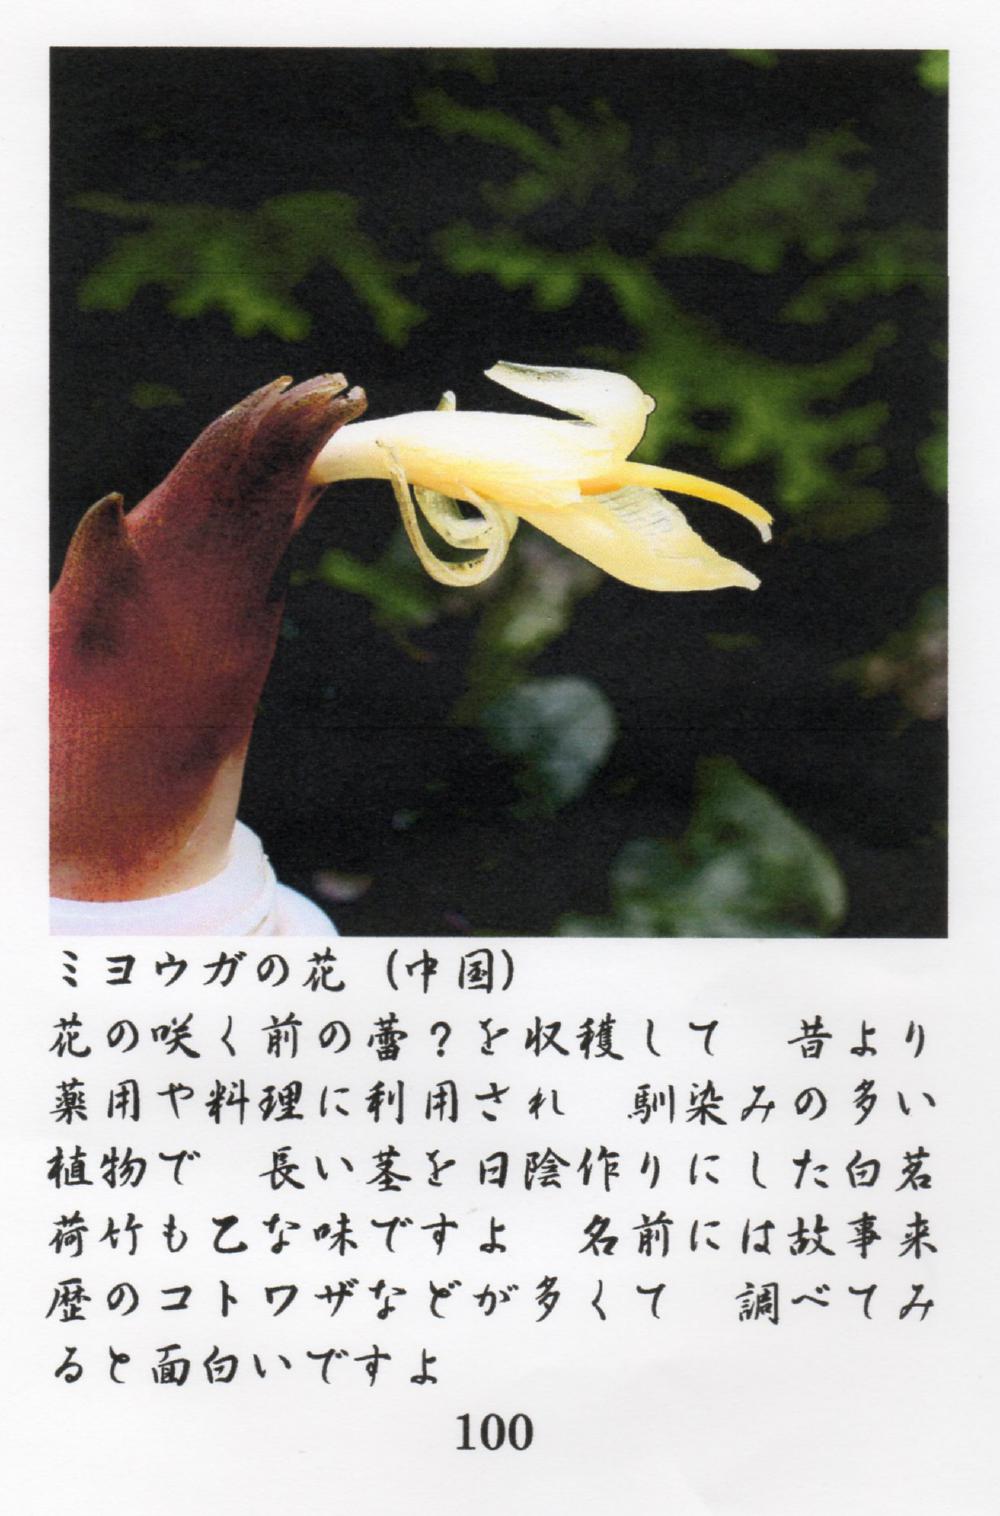 ミヨウガの花（中国）
花の咲く前の蕾？を収穫して　昔より
薬用や料理に利用され　馴染みの多い
植物で　長い茎を日陰作りにした白茗
荷竹も乙な味ですよ　名前には故事来
歴のコトワザなどが多くて　調べてみ
ると面白いですよ
100